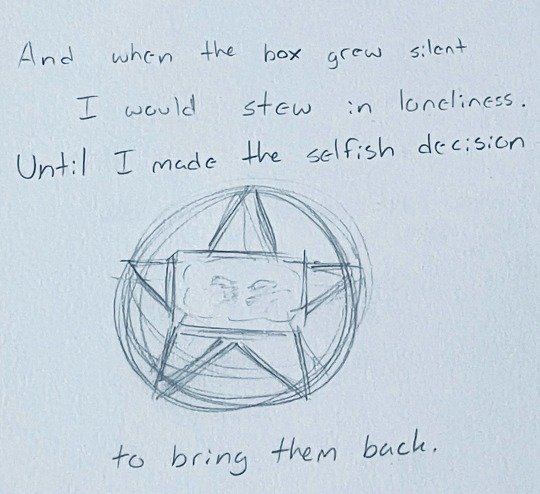 And when the box grew silent
I would stew in loneliness.
Until I made the selfish decision
to bring them back.